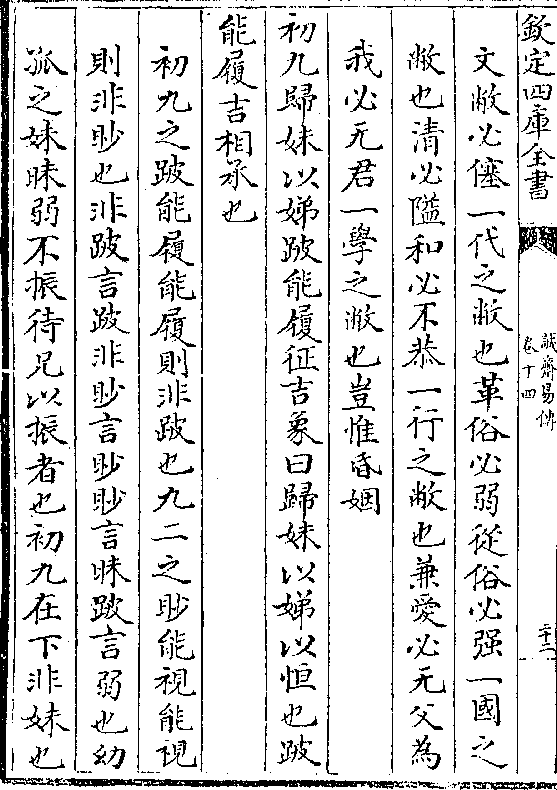 欽定四庫全書
誠齋易傳
卷十四
二十二
文敝必僿一代之敝也革俗必弱從俗必强一國之
敝也清必隘和必不恭一行之敝也兼愛必无父為
我必无君一學之敝也豈惟昏姻
初九歸妹以娣跛能履征吉象曰歸妹以娣以恒也跛
能履吉相承也
初九之跛能履能履則非跛也九二之眇能視能視
則非眇也非跛言跛非眇言眇眇言昧跛言弱也幼
孤之妹昧弱不振待兄以振者也初九在下非妹也